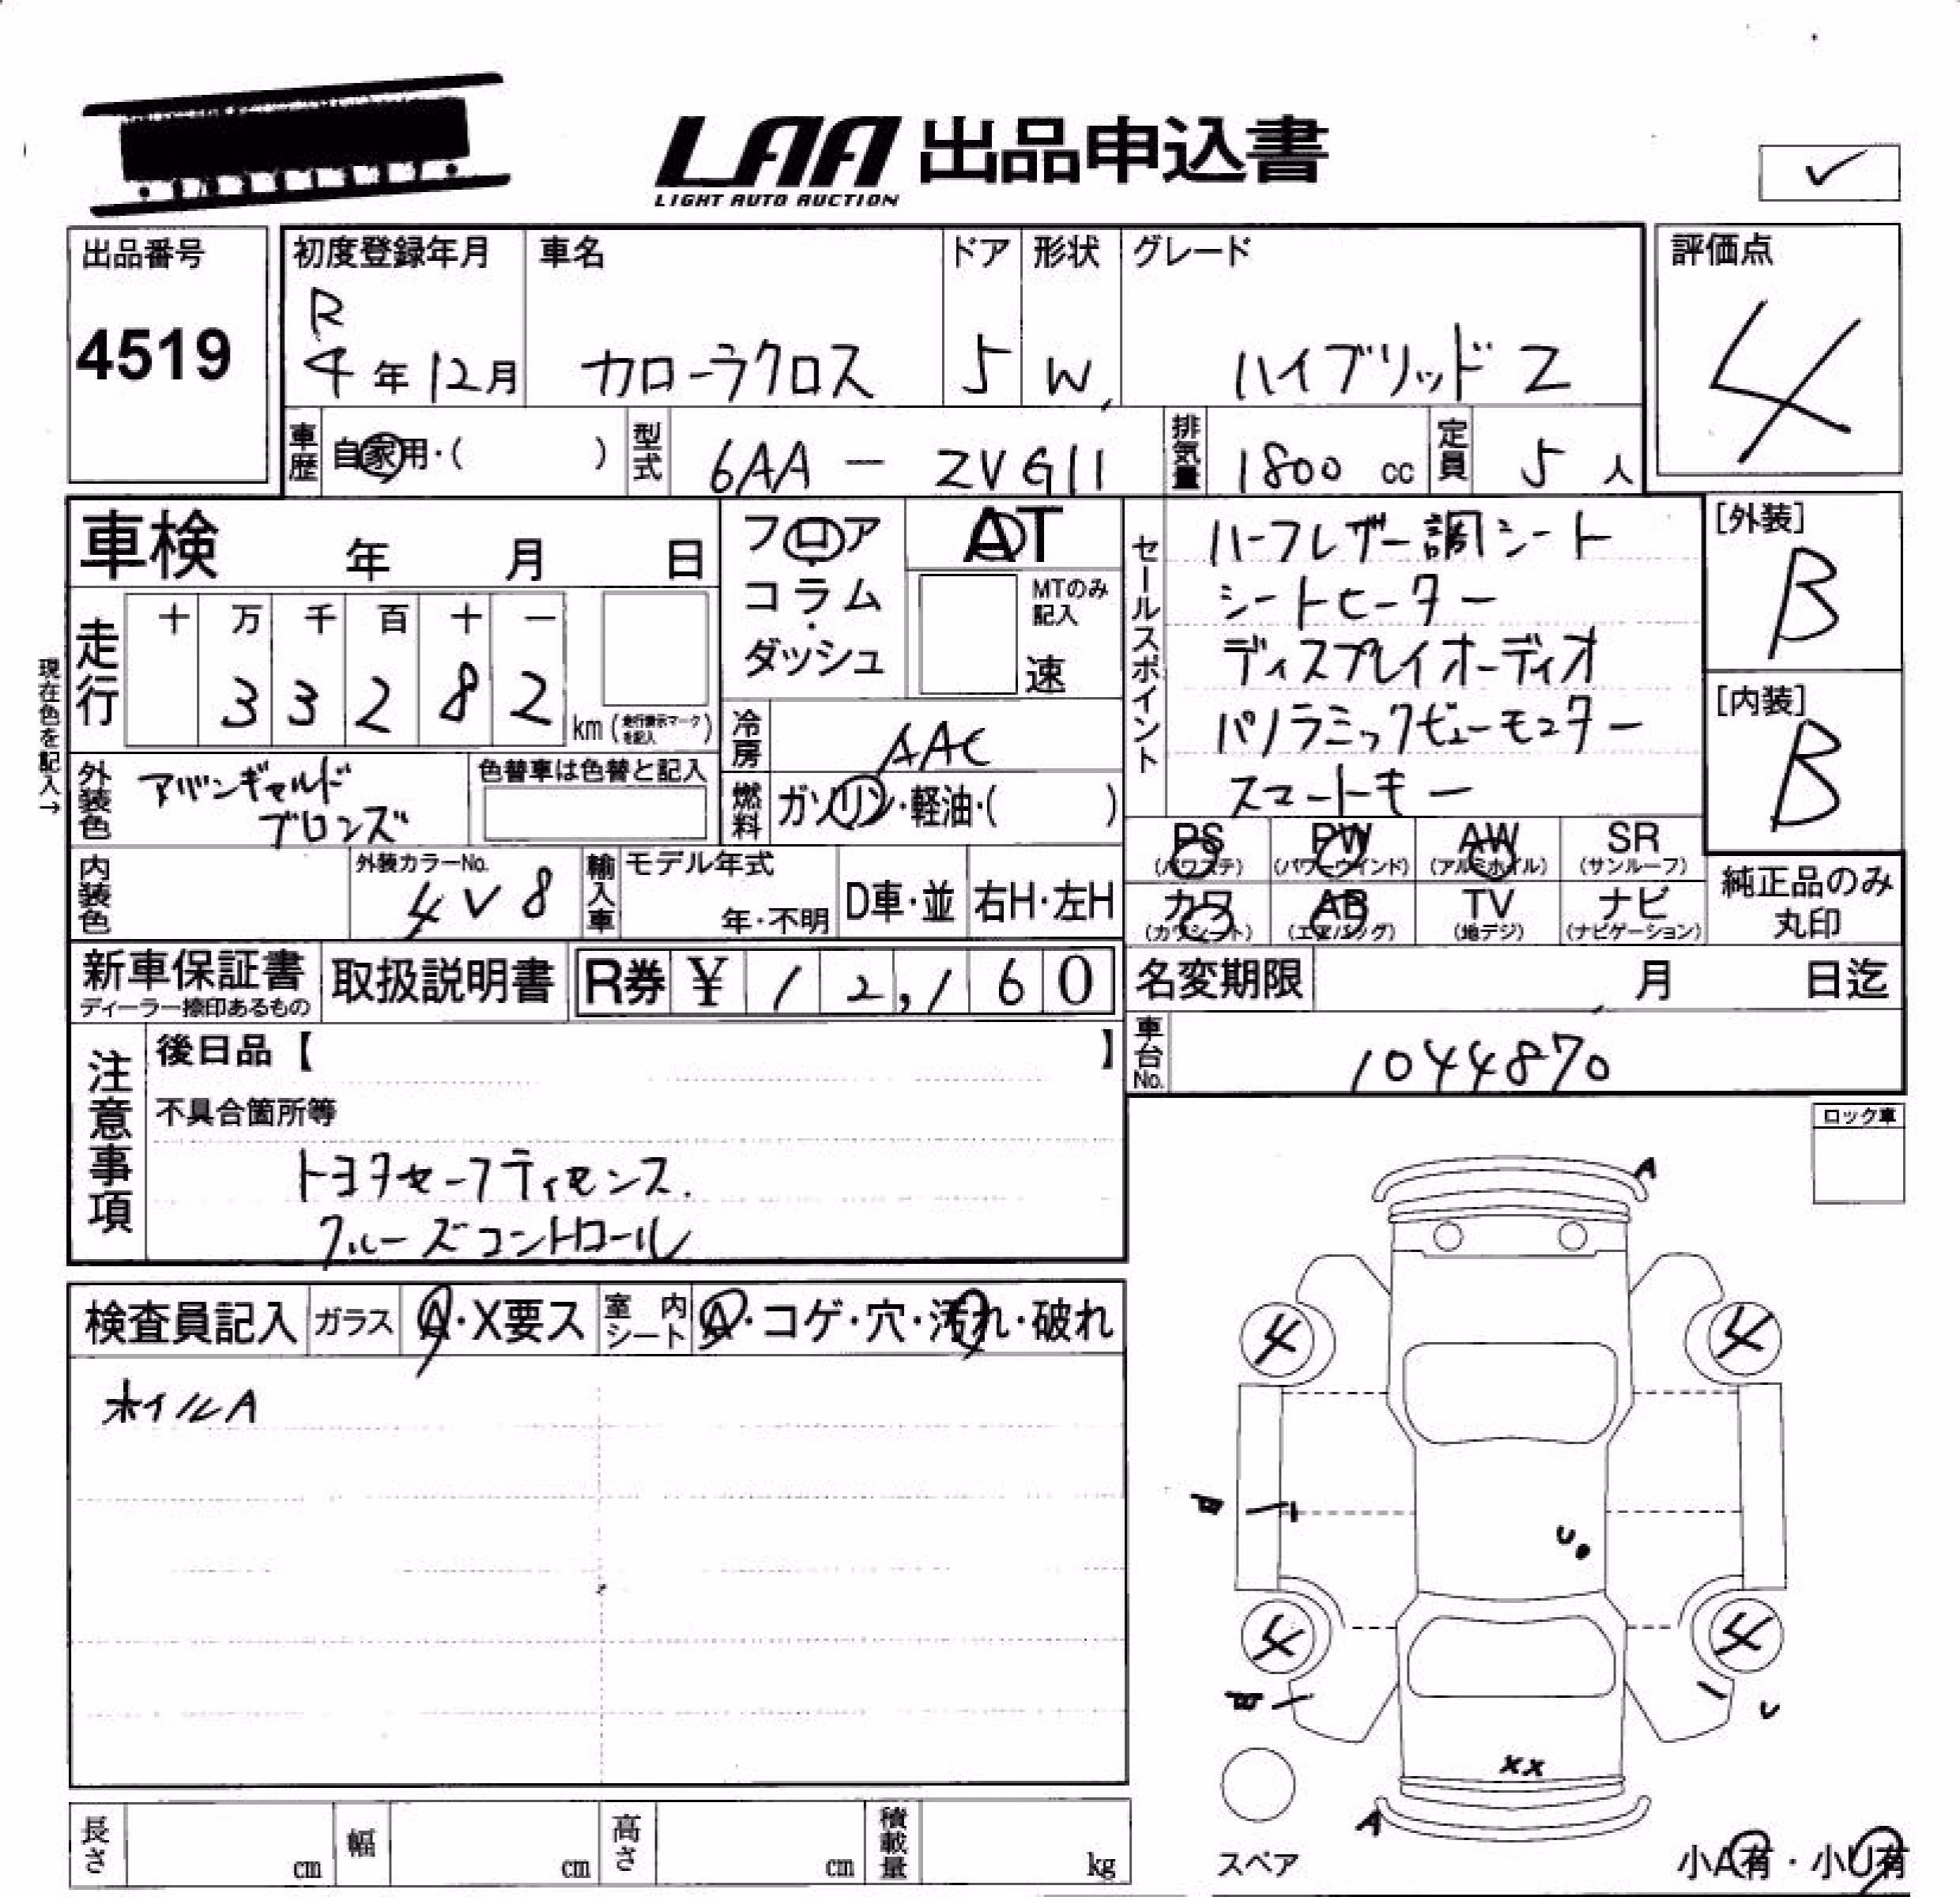 LAA 出品申込書
LIGHT AUTO AUCTION
✓
出品番号 初度登録年月 車名 ドア 形状 グレード 評価点
4519 R 4年12月 カローラクロス 5 W ハイブリッド Z 4
車歴 自家用・( ) 型式 6AA - ZVG11 排気量 1800 cc 定員 5 人
車検 年 月 日
フロア
コラム
ダッシュ
AT
MTのみ記入
速
セールスポイント
ハーフレザー調シート
シートヒーター
ディスプレイオーディオ
パノラミックビューモニター
スマートキー
[外装]
B
[内装]
B
現在色を記入→
走行 十 万 千 百 十 一
3 3 2 8 2 km (走行表示マークを記入)
冷房 AAC
外装色 アバンギャルドブロンズ
色替車は色替と記入
燃料 ガソリン・軽油・( )
PS (パワステ) PW (パワーウインド) AW (アルミホイル) SR (サンルーフ)
カワ (カワシート) AB (エアバッグ) TV (地デジ) ナビ (ナビゲーション)
純正品のみ
丸印
内装色 外装カラーNo. 4V8
輸入車 モデル年式 年・不明 D車・並 右H・左H
新車保証書
ディーラー捺印あるもの
取扱説明書 R券 ¥ 12,160
名変期限 月 日迄
車台No. 1044870
注意事項
後日品【 】
不具合箇所等
トヨタセーフティセンス.
クルーズコントロール
ロック車
検査員記入 ガラス A・X要ス 室内シート A・コゲ・穴・汚れ・破れ
ホイルA
A
4 4
U
4 4
U
XX
A
スペア
小A有・小U有
長さ cm 幅 cm 高さ cm 積載量 kg